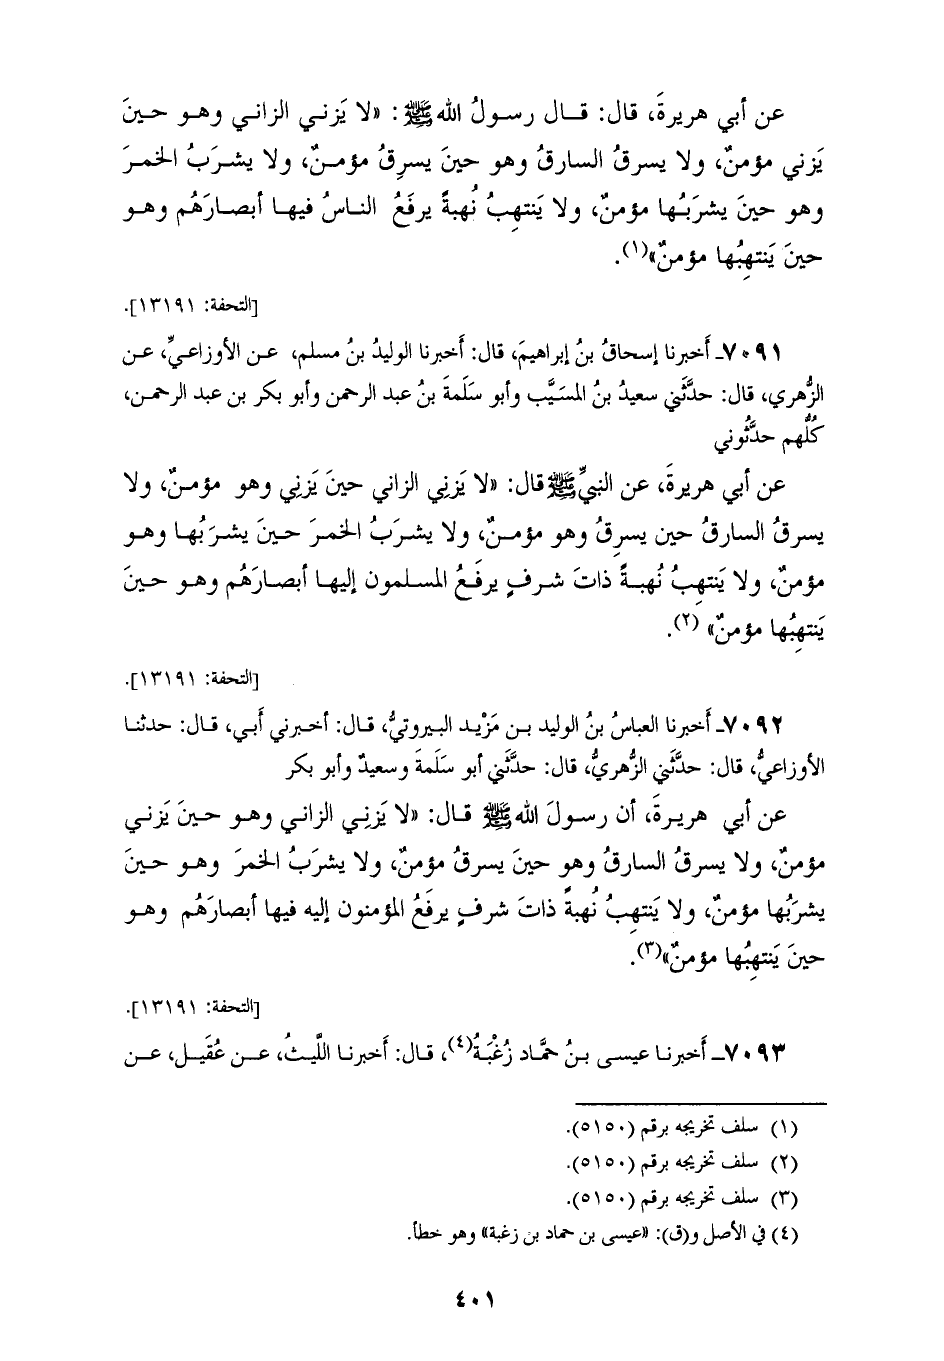 عن أبي هريرةَ، قال: قـال رسـولُ الله ﷺ: «لا يَزنـي الزاني وهـو حيـنَ
يَزني مؤمنٌ، ولا يسرقُ السارقُ وهو حينَ يسرِقُ مؤمـنٌ، ولا يشـرَبُ الخمـرَ
وهو حينَ يشرَبُـها مؤمنٌ، ولا يَنتهِبُ نُهبةً يرفَعُ النـاسُ فيهـا أبصـارَهُم وهـو
حينَ يَنتهِبُها مؤمنٌ»(١).
[التحفة: ١٣١٩١].
٧٠٩١ـ أخبرنا إسحاقُ بنُ إبراهيمَ، قال: أَخبرنا الوليدُ بنُ مسلم، عـن الأوزاعـيِّ، عـن
الزُّهري، قال: حدَّثَني سعيدُ بنُ المسَيَّب وأبو سَلَمةَ بنُ عبد الرحمن وأبو بكر بن عبد الرحمـن،
كُلُّهم حدَّثُوني
عن أبي هريرةَ، عن النبيِّ ﷺ قال: «لا يَزنِي الزاني حينَ يَزنِي وهو مؤمـنٌ، ولا
يسرقُ السارقُ حين يسرِقُ وهو مؤمـنٌ، ولا يشـرَبُ الخمرَ حـينَ يشـرَبُـها وهـو
مؤمنٌ، ولا يَنتهِبُ نُهبـةً ذاتَ شـرفٍ يرفَـعُ المسـلمون إليهـا أبصـارَهُم وهـو حيـنَ
يَنتهِبُها مؤمنٌ» (٢).
[التحفة: ١٣١٩١].
٧٠٩٢ـ أَخبرنا العباسُ بنُ الوليد بـن مَزْيـد البـيروتيُّ، قـال: أخـبرني أَبـي، قـال: حدثنـا
الأوزاعيُّ، قال: حدَّثَني الزُّهريُّ، قال: حدَّثَني أبو سَلَمةَ وسعيدٌ وأبو بكر
عن أبي هريـرةَ، أن رسـولَ الله ﷺ قـال: «لا يَزنِـي الزانـي وهـو حيـنَ يَزنـي
مؤمنٌ، ولا يسرقُ السارقُ وهو حينَ يسرقُ مؤمنٌ، ولا يشربُ الخمرَ وهـو حيـنَ
يشرَبُها مؤمنٌ، ولا يَنتهِبُ نُهبةً ذاتَ شرفٍ يرفَعُ المؤمنون إليه فيها أبصارَهُم وهـو
حينَ يَنتهِبُها مؤمنٌ»(٣).
[التحفة: ١٣١٩١].
٧٠٩٣ـ أخبرنـا عيسـى بـنُ حمَّـاد زُغْبَـةُ(٤)، قـال: أَخبرنـا اللَّيـثُ، عـن عُقَيـل، عـن
(١) سلف تخريجه برقم (٥١٥٠).
(٢) سلف تخريجه برقم (٥١٥٠).
(٣) سلف تخريجه برقم (٥١٥٠).
(٤) في الأصل و(ق): «عيسى بن حماد بن زغبة» وهو خطأ.
٤٠١